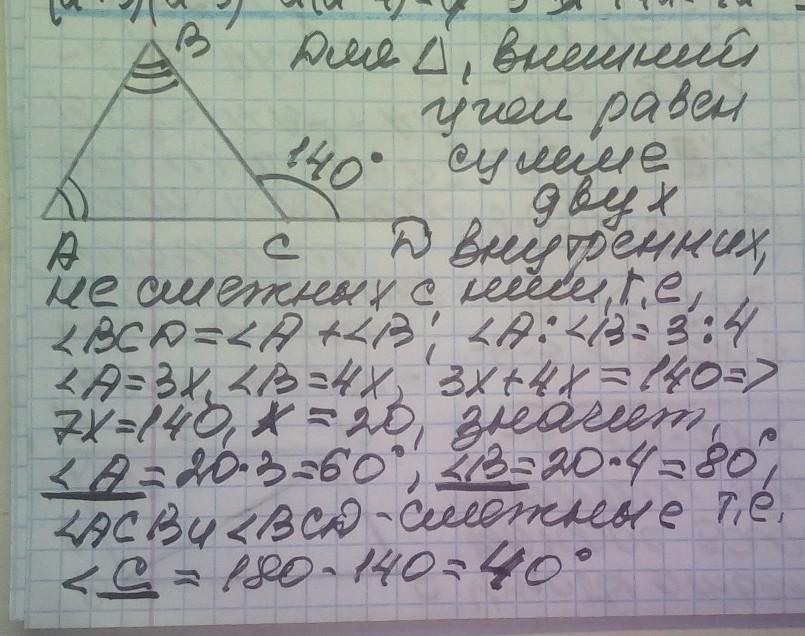 B
Для Δ, внешний
угол равен
140°
сумме
двух
A C D внутренних,
не смежных с ним, т.е.,
∠BCD=∠A+∠B; ∠A:∠B=3:4
∠A=3x, ∠B=4x, 3x+4x=140=>
7x=140, x=20, значит,
∠A=20·3=60°, ∠B=20·4=80°,
∠ACB и ∠BCD-смежные т.е.
∠C=180-140=40°